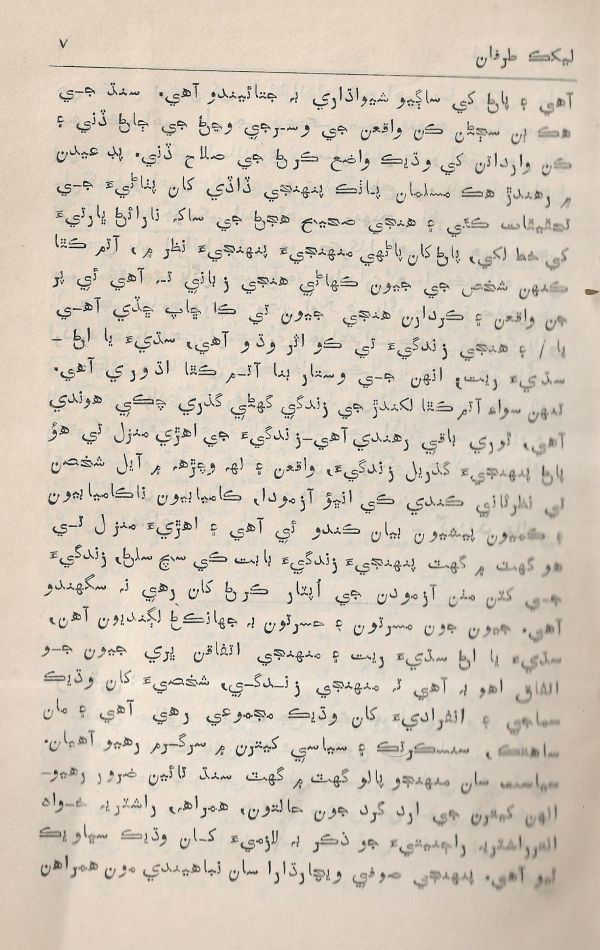 ليکڪ طرفان
٧
آهي ۽ پاڻ کي ساڳيو شيواڌاري بہ جتائيندو آهي. سنڌ جي
هڪ ٻن سڄڻن ڪن واقعن جي وسرجي وڃڻ جي ڄاڻ ڏني ۽
ڪن وارداتن کي وڌيڪ واضع ڪرڻ جي صلاح ڏني. پڊ عيدن
۾ رهندڙ هڪ مسلمان پاٺڪ پنهنجي ڏاڏي کان پڻائيءَ جي
تحقيقات ڪئي ۽ هنجي صحيح هجڻ جي ساک نارائڻ ڀارتيءَ
کي خط لکي، پاڻ کان پاڻهي منهنجيءَ پنهنجيءَ نظر ۾، آتم ڪٿا
ڪنهن شخص جي جيون ڪهاڻي هنجي زباني تہ آهي ئي پر
جن واقعن ۽ ڪردارن هنجي جيون تي ڪا ڇاپ ڇڏي آهي
يا / ۽ هنجي زندگيءَ تي ڪو اثر وڌو آهي، سڌيءَ يا اڻ -
سڌيءَ ريت، انهن جي وستار بنا آتم ڪٿا اڌوري آهي.
تنهن سواءِ آتم ڪٿا لکندڙ جي زندگي گهڻي گذري چڪي هوندي
آهي، ٿوري باقي رهندي آهي-زندگيءَ جي اهڙي منزل تي هو
پاڻ پنهنجيءَ گذريل زندگيءَ، واقعن ۽ لهہ وچڙهہ ۾ آيل شخصن
تي نظرثاني ڪندي کي انيڪ آزمودا، ڪاميابيون ناڪاميابيون
۽ ڪميون بيشيون بيان ڪندو ئي آهي ۽ اهڙيءَ منزل تي
هو گهٽ ۾ گهٽ پنهنجيءَ زندگيءَ بابت کي سچ سلڻ، زندگيءَ
جي کٽن مٺن آزمودن جي اُپٽار ڪرڻ کان رهي نہ سگهندو
آهي. جيون جون مسرتون ۽ حسرتون بہ جهانڪڻ لڳنديون آهن،
سڌيءَ يا اڻ سڌيءَ ريت ۽ منهنجي اتفاقن ڀري جيون جو
اتفاق اهو بہ آهي تہ منهنجي زندگي، شخصيءَ کان وڌيڪ
سماجي ۽ انفراديءَ کان وڌيڪ مجموعي رهي آهي ۽ مان
ساهتڪ، سنسڪرتڪ ۽ سياسي کيترن ۾ سرگرم رهيو آهيان.
سياست سان منهنجو پالو گهٽ ۾ گهٽ سنڌ تائين ضرور رهيو-
انهن کيترن جي ارد گرد جون حالتون، همراهہ، راشٽريہ خواه
انترراشٽريہ راجنيتيءَ جو ذڪر بہ لازميءَ کان وڌيڪ سڀاويڪ
ٿيو آهي. پنهنجي صوفي ويچارڌارا سان نباهيندي مون همراهن